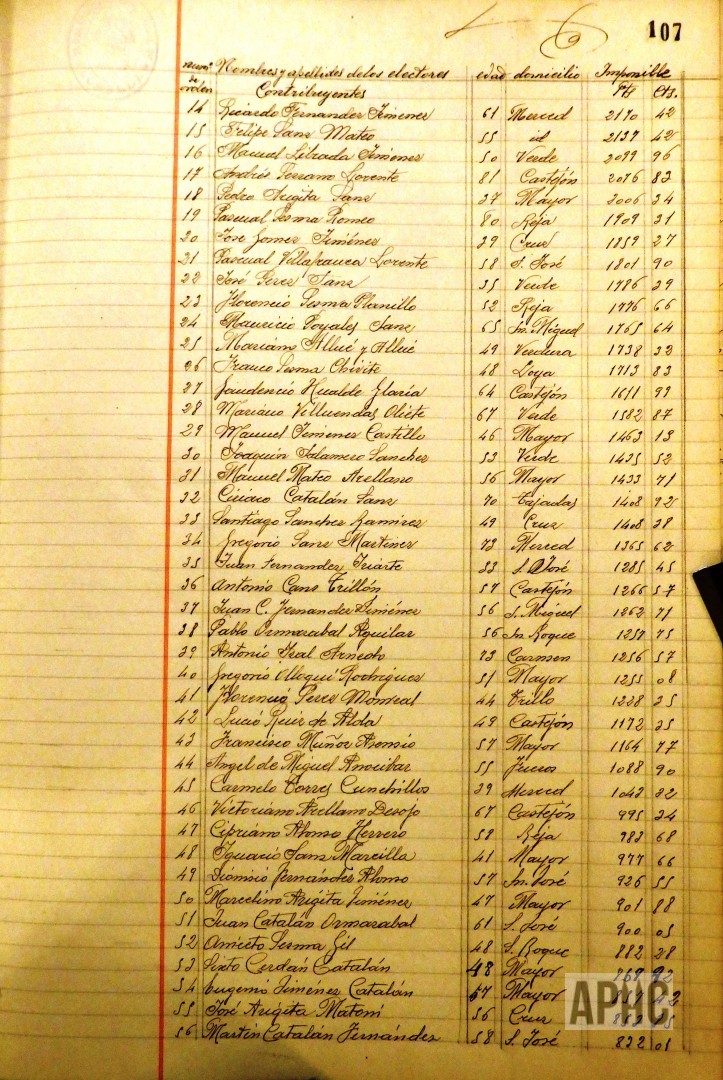 107
Numº de orden Nombres y apellidos de los electores Contribuyentes edad domicilio Imponible Pts Cts.
14 Ricardo Fernandez Jimenez 61 Merced 2170 42
15 Felipe Sanz Mateo 55 id 2137 42
16 Manuel Librada Jimenez 50 Verde 2099 96
17 Andrés Serrano Llorente 81 Castejón 2076 83
18 Pedro Arigita Sanz 37 Mayor 2006 34
19 Pascual Sesma Romeo 80 Reja 1909 31
20 Jose Gomez Jiménez 39 Cruz 1859 27
21 Pascual Villafranca Llorente 58 S. José 1801 90
22 José Perez Sanz 35 Verde 1786 39
23 Florencio Sesma Planillo 52 Reja 1776 66
24 Mauricio Poyales Sanz 65 Sn. Miguel 1765 64
25 Mariano Allué y Allué 49 Verdura 1738 32
26 Franco Sesma Chivite 48 Loya 1713 83
27 Gaudencio Hualde Ilaría 64 Castejón 1611 93
28 Mariano Villuendas Oliete 67 Verde 1582 87
29 Manuel Jimenez Castillo 46 Mayor 1463 13
30 Joaquin Salamero Sanchez 53 Verde 1435 52
31 Manuel Mateo Arellano 56 Mayor 1433 71
32 Ciriaco Catalán Sanz 70 Tajadas 1408 92
33 Santiago Sanchez Ramirez 49 Cruz 1408 38
34 Gregorio Sanz Martinez 73 Merced 1365 62
35 Juan Fernandez Iriarte 33 S. José 1285 45
36 Antonio Cans Trillón 57 Castejón 1266 57
37 Juan C. Fernandez Jiménez 56 S. Miguel 1262 71
38 Pablo Ormazabal Aguilar 56 Sn. Roque 1257 75
39 Antonio Gral Arnedo 73 Carmen 1256 57
40 Gregorio Olloqui Rodriguez 51 Mayor 1255 08
41 Florencio Perez Monreal 44 Trillo 1228 35
42 Lucio Ruiz de Alda 49 Castejón 1172 35
43 Francisco Muñoz Asensio 57 Mayor 1164 77
44 Angel de Miguel Anocibar 55 Fueros 1088 90
45 Carmelo Torres Cunchillos 39 Merced 1043 82
46 Victoriano Arellano Desojo 67 Castejón 995 34
47 Cipriano Alonso Herrero 58 Reja 983 68
48 Ignacio Sanz Marcilla 41 Mayor 977 66
49 Dionisio Fernández Alonso 57 Sn. José 926 55
50 Marcelino Arigita Jiménez 47 Mayor 901 88
51 Juan Catalán Ormazabal 61 S. José 900 05
52 Aniceto Sesma Gil 48 S. Roque 882 28
53 Sixto Cerdán Catalán 48 Mayor 92
54 Eugenio Jiménez Catalán 57 Mayor
55 José Arigita Matoni 56 Cruz
56 Martín Catalán Fernández 58 S. José 832 01
APHC